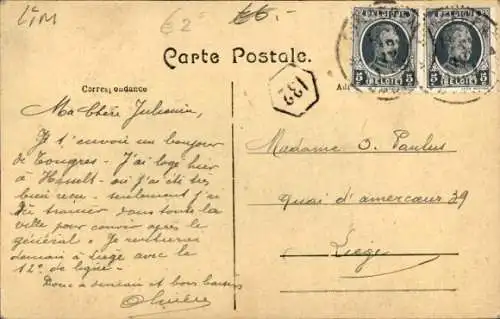 Lim
€2
€6.-
Carte Postale.
BELGIQUE
5 5
BELGIË
BELGIQUE
5 5
BELGIË
132
Correspondance
Ma Chère Julienne,
Je t'envoie un bonjour
de Tongres - J'ai logé hier
à Hasselt - où j'ai été très
bien reçu - seulement j'ai
dû trainer dans toute la
ville pour courir après le
général. Je rentrerai
demain à Liège avec le
12e de ligne -
Donc à demain et bons baisers
Olivier
Madame O. Paulus
Quai d'amercœur 39
Liège